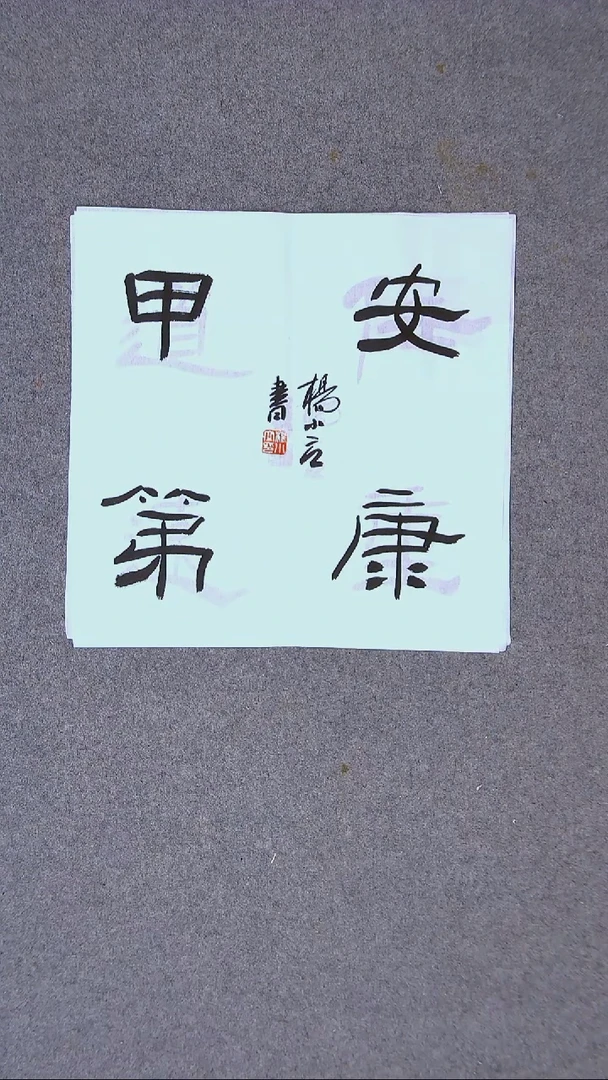 安康
甲第
楊小言
書